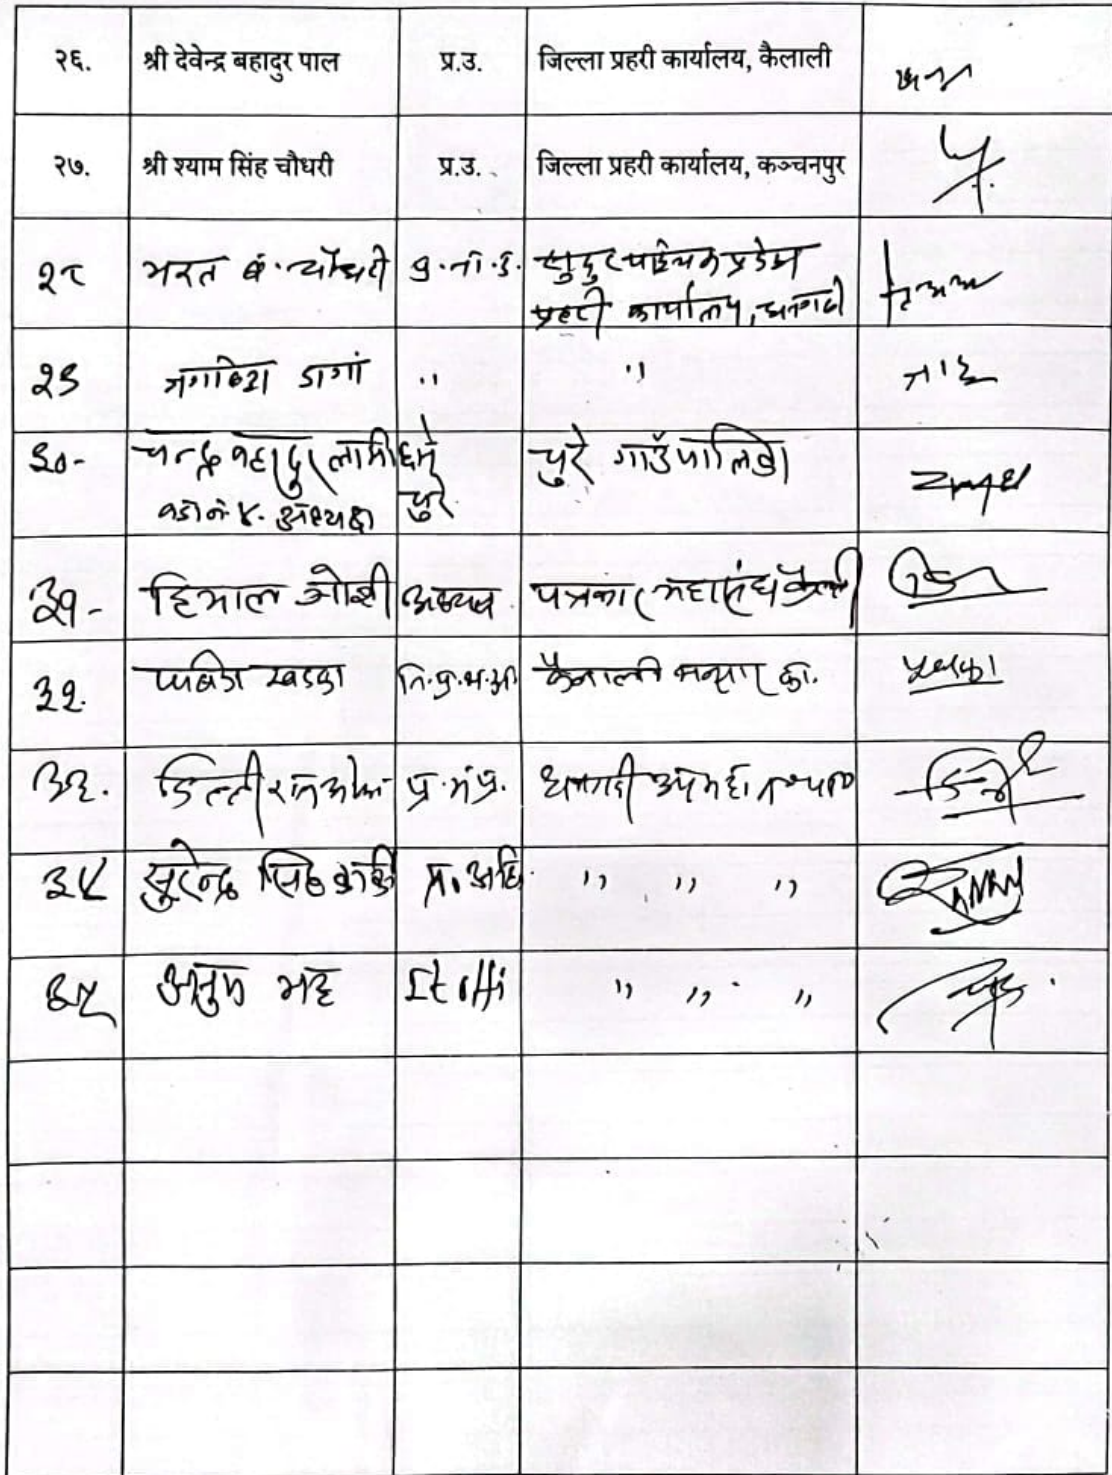 २६. श्री देवेन्द्र बहादुर पाल प्र.उ. जिल्ला प्रहरी कार्यालय, कैलाली
२७. श्री श्याम सिंह चौधरी प्र.उ. जिल्ला प्रहरी कार्यालय, कञ्चनपुर
२८ भरत ब. चौधरी प्र.ना.उ. सुदुरपश्चिम प्रदेश
प्रहरी कार्यालय, धनगढी
२९ डागां " "
३०- चन्द्र बहादुर लामिछाने चुरे गाउँपालिका
वडा नं ४. अध्यक्ष चुरे
३१- हिमाल जोशी अध्यक्ष पत्रकार महासंघ कैलाली
३२. खडका कैलाली का.
३३. डिल्ली राज प्र.न.प्र. धनगढी उपमहानगरपा
३४ सुरेन्द्र सिंह कार्की प्र. अधि. " " "
३५ अनुप भट्ट " " "